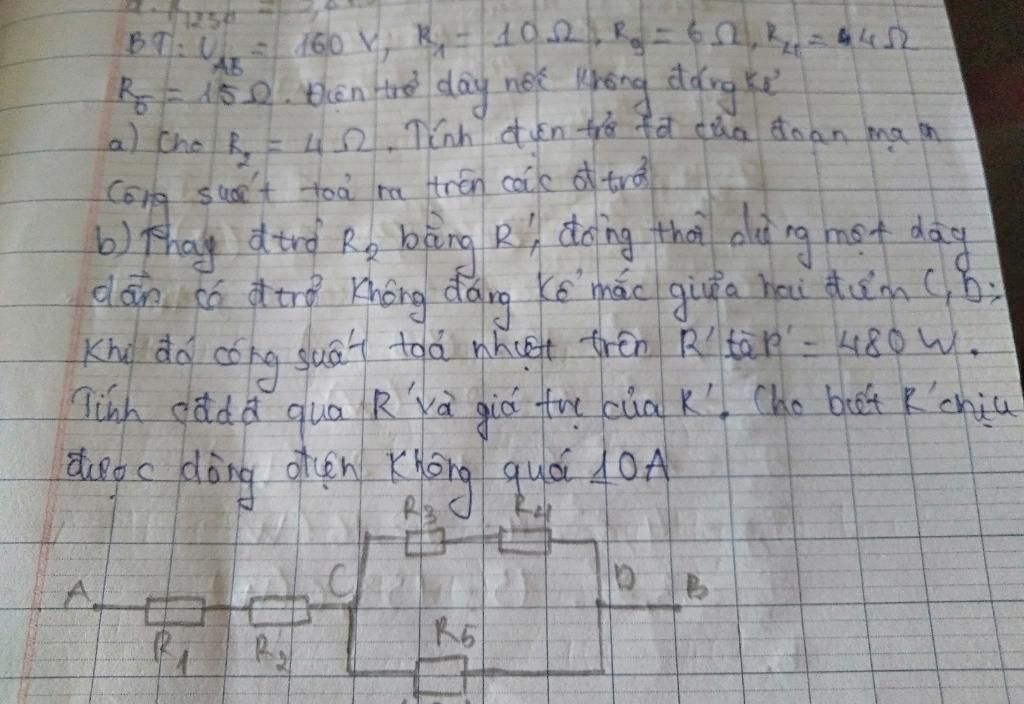 BT: U_AB = 160 V, R₁ = 10Ω, R₃ = 6Ω, R₄ = 4Ω
R₅ = 15Ω. Điện trở dây nối không đáng kể
a) Cho R₂ = 4Ω. Tính điện trở tđ của đoạn mạch
Công suất toả ra trên các đtrở
b) Thay đtrở R₂ bằng R', đồng thời dùng một dây
dẫn có đtrở không đáng kể mắc giữa hai điểm C, D;
Khi đó công suất toả nhiệt trên R' là P' = 480 W.
Tính cđdđ qua R' và giá trị của R'. Cho biết R' chịu
được dòng điện không quá 10A
R₃ R₄
A C D B
R₁ R₂ R₅